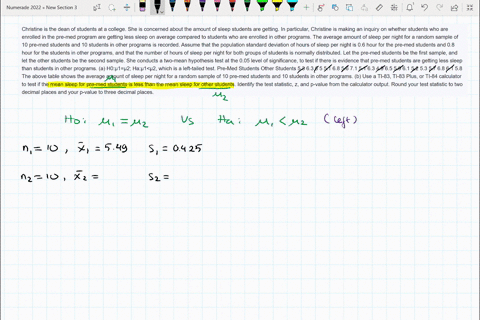 Numerade 2022 » New Section 3
Christine is the dean of students at a college. She is concerned about the amount of sleep students are getting. In particular, Christine is making an inquiry on whether students who are
enrolled in the pre-med program are getting less sleep on average compared to students who are enrolled in other programs. The average amount of sleep per night for a random sample of
10 pre-med students and 10 students in other programs is recorded. Assume that the population standard deviation of hours of sleep per night is 0.6 hour for the pre-med students and 0.8
hour for the students in the other programs, and that the number of hours of sleep per night for both groups of students is normally distributed. Let the pre-med students be the first sample, and
let the other students be the second sample. She conducts a two-mean hypothesis test at the 0.05 level of significance, to test if there is evidence that pre-med students are getting less sleep
than students in other programs. (a) H0:μ1=μ2; Ha:μ1<μ2, which is a left-tailed test. Pre-Med Students Other Students
The above table shows the average amount of sleep per night for a random sample of 10 pre-med students and 10 students in other programs. (b) Use a TI-83, TI-83 Plus, or TI-84 calculator
to test if the mean sleep for pre-med students is less than the mean sleep for other students. Identify the test statistic, z, and p-value from the calculator output. Round your test statistic to two
decimal places and your p-value to three decimal places.
μ1
μ2
Ho: μ1 = μ2 Vs Ha: μ1 < μ2 (left)
n1 = 10, x̄1 = 5.49 S1 = 0.425
n2 = 10, x̄2 = S2 =